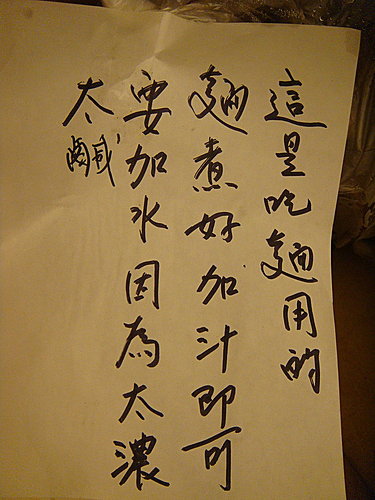 這是吃麵用的
麵煮好加汁即可
要加水因為太濃
太鹹